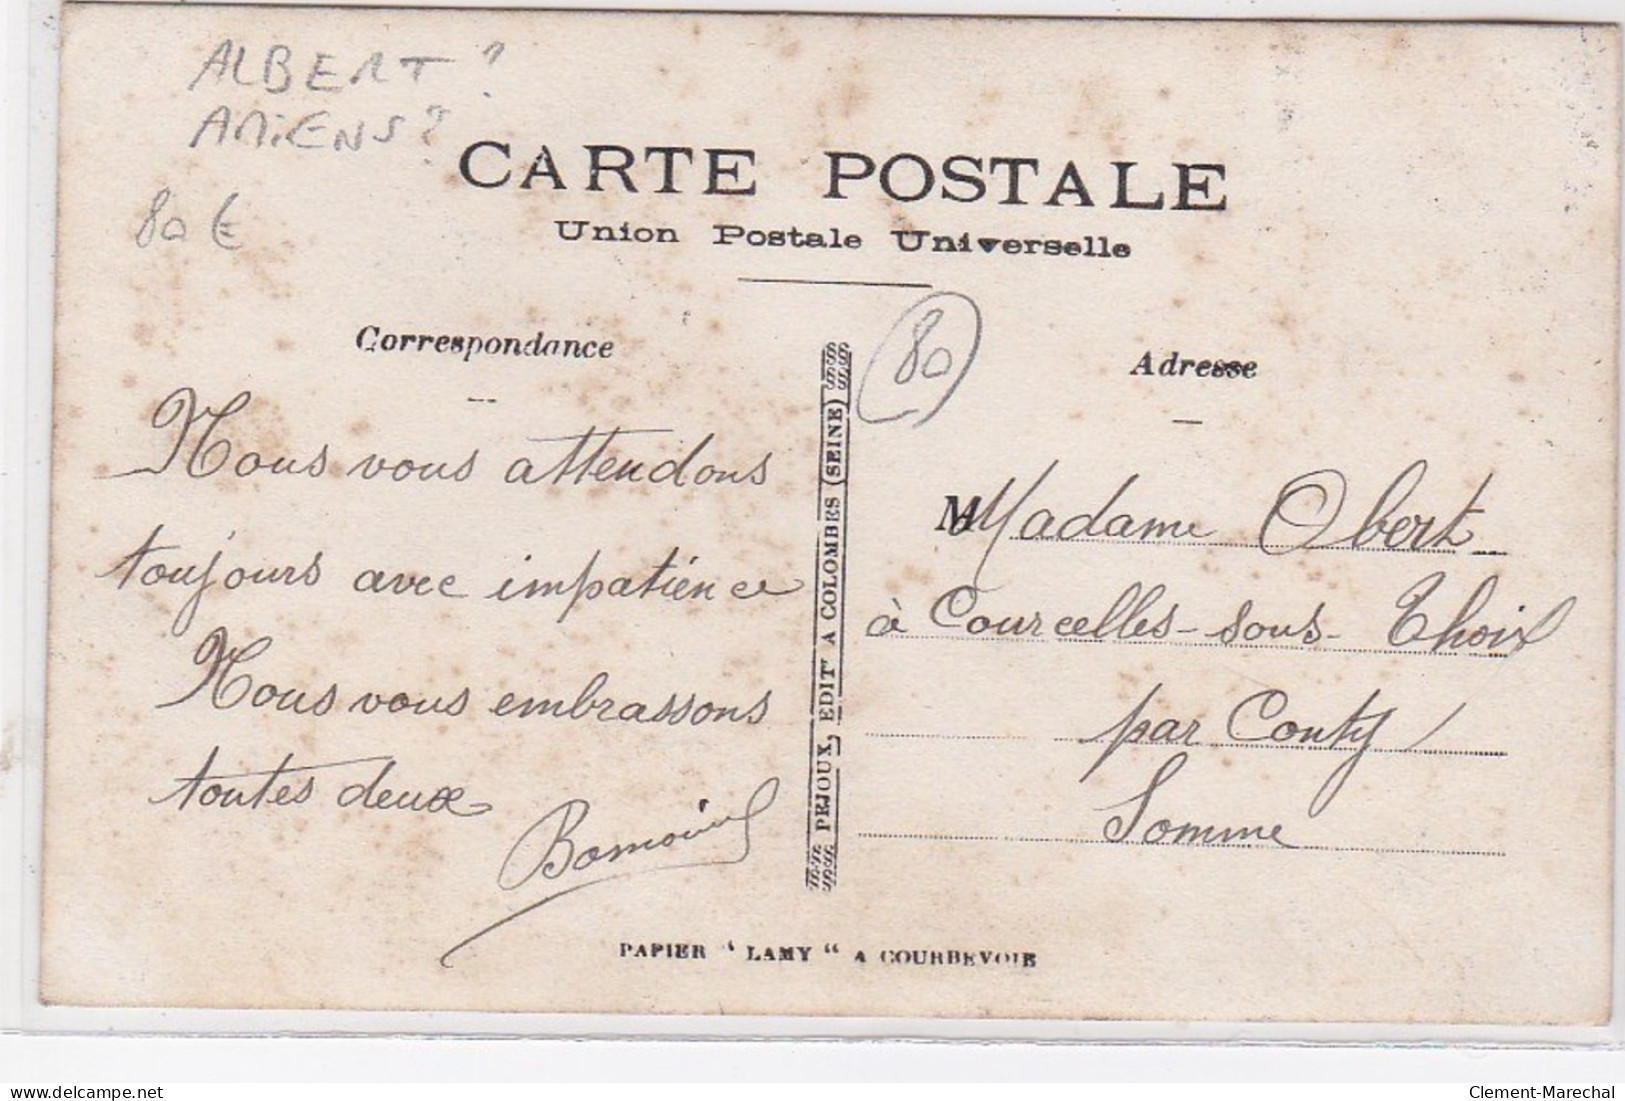 ALBERT ?
AMIENS ?
80 €
CARTE POSTALE
Union Postale Universelle
80
Correspondance
Nous vous attendons
toujours avec impatience
Nous vous embrassons
toutes deux
PRJOUX, EDIT' A COLOMBES (SEINE)
Adresse
M Madame Obert
à Courcelles-sous-Thoix
par Conty
Somme
PAPIER "LAMY" A COURBEVOIE
Clement-Marechal